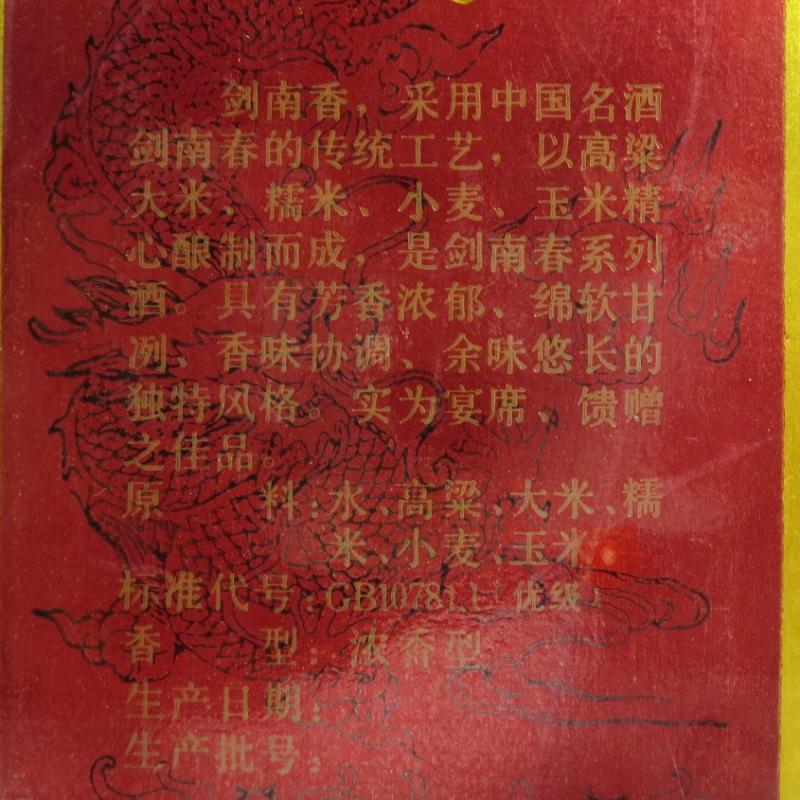 剑南香，采用中国名酒
剑南春的传统工艺，以高粱
大米、糯米、小麦、玉米精
心酿制而成，是剑南春系列
酒。具有芳香浓郁、绵软甘
冽、香味协调、余味悠长的
独特风格。实为宴席、馈赠
之佳品。
原料:水、高粱、大米、糯
米、小麦、玉米
标准代号:GB10781.1(优级)
香型:浓香型
生产日期:
生产批号: